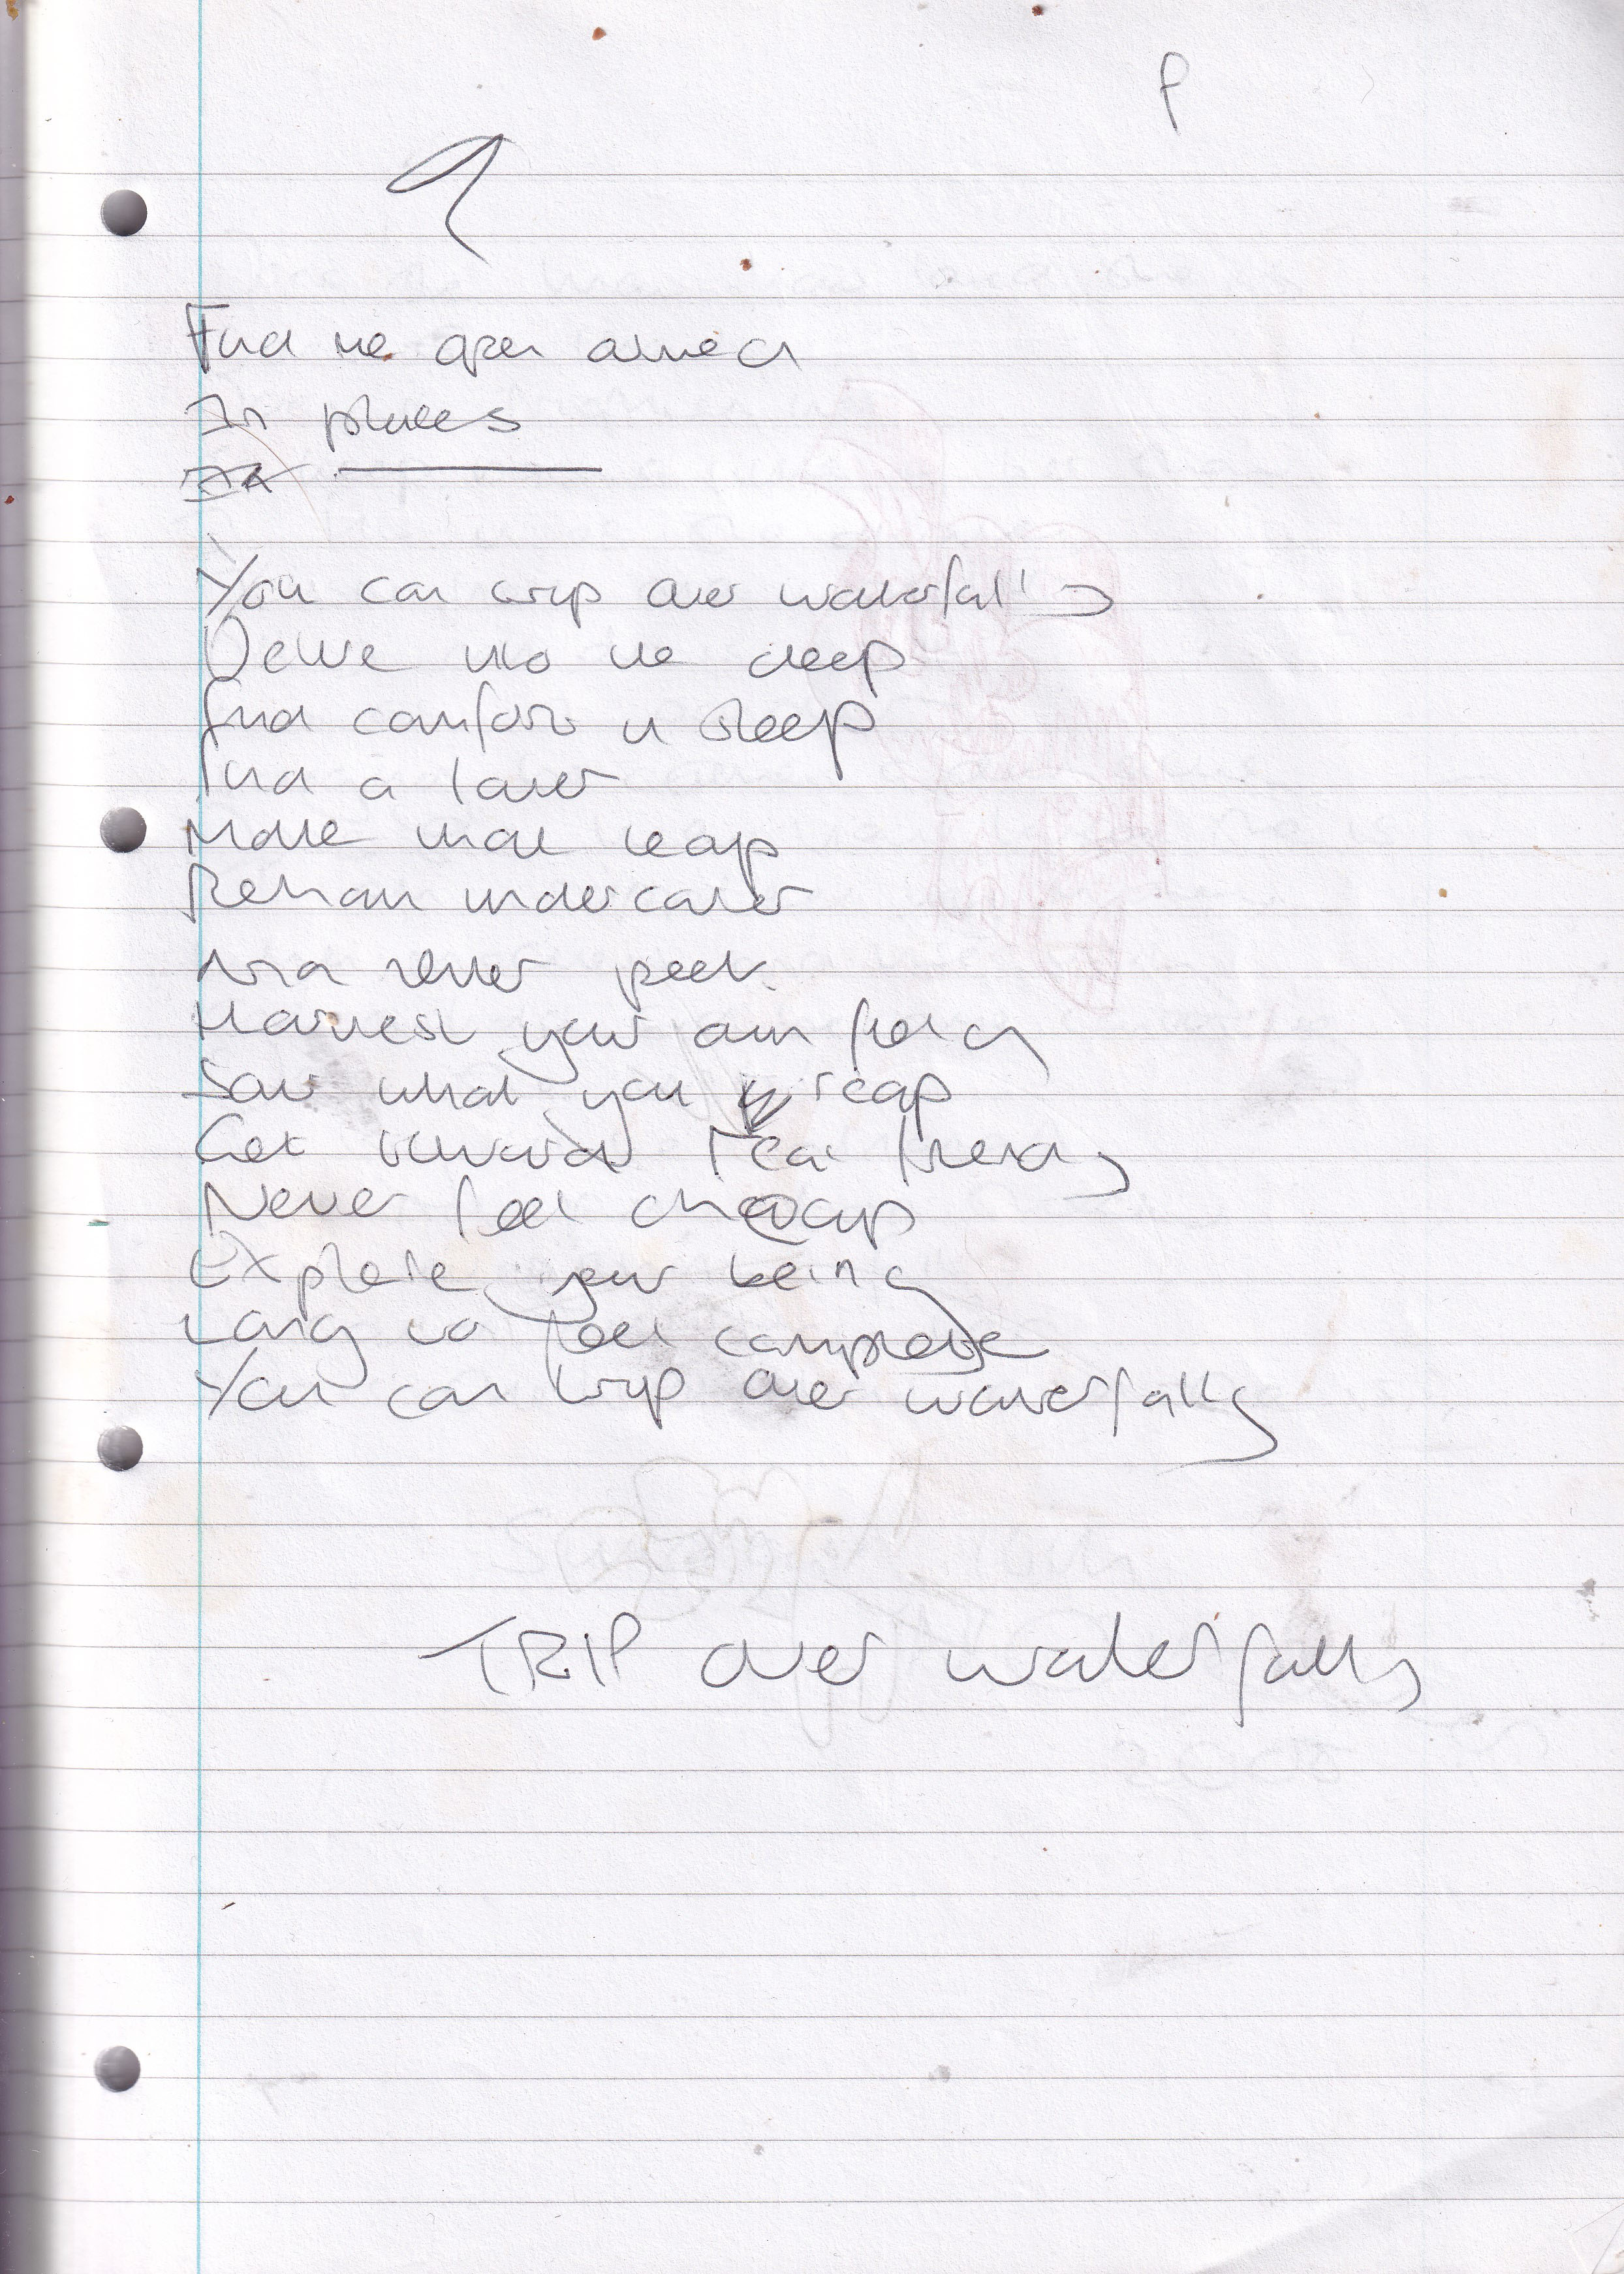 P
Find me open armed
In places
You can trip over waterfalls
Delve into the deep
find comfort in sleep
find a lover
Make that leap
Remain undercover
And never peek.
Harvest your own
Sow what you reap
Get reward
Never feel cheap
Explore your being
Long to feel complete
You can trip over waterfalls
TRIP over waterfalls